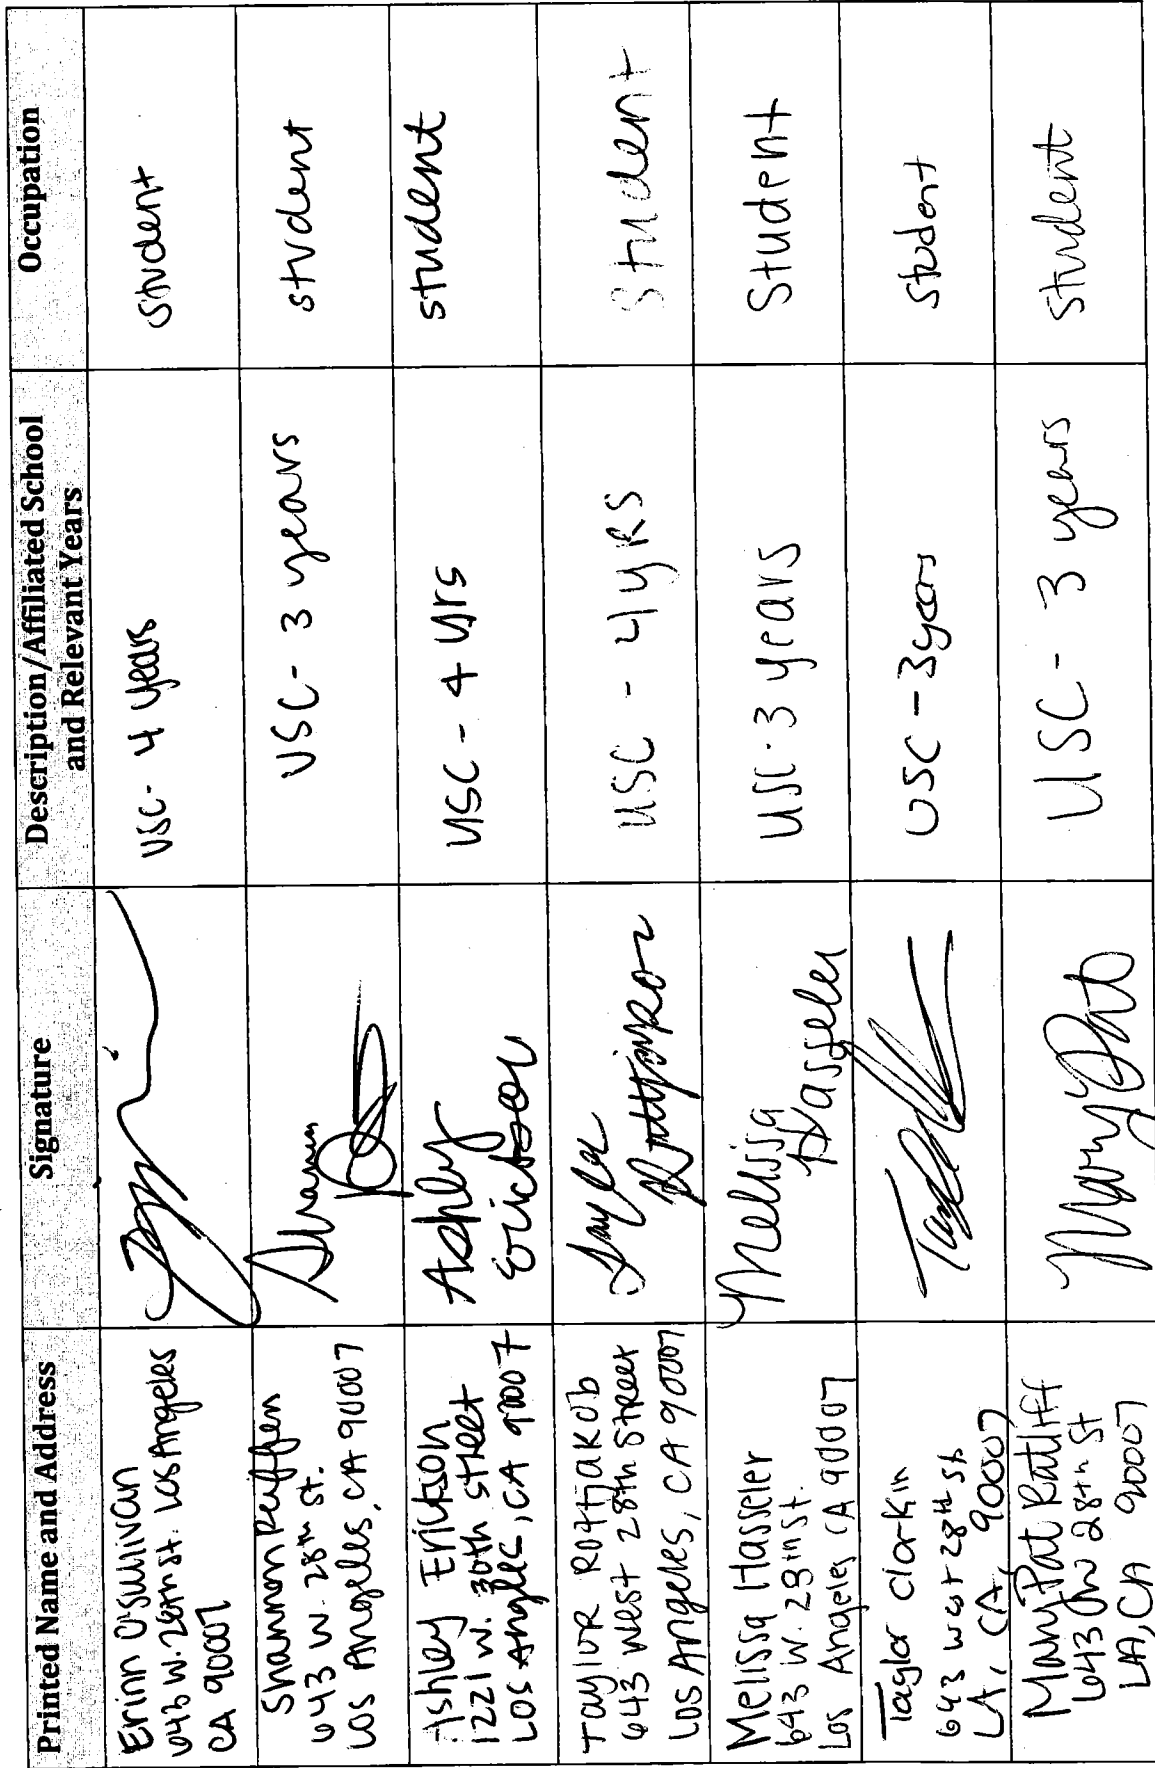 Printed Name and Address
Signature
Description/Affiliated School
and Relevant Years
Occupation
Erinn O'Sullivan
643 W. 28th St. Los Angeles
CA 90007
USC - 4 years
student
Shannon Peiffer
643 W. 28th St.
Los Angeles, CA 90007
Shannon
USC - 3 years
student
Ashley Erickson
1221 W. 30th Street
Los Angles, CA 90007
Ashley
Erickson
USC - 4 yrs
student
Taylor Rottjakob
643 West 28th Street
Los Angeles, CA 90007
Taylor
Rottjakob
USC - 4 yrs
Student
Melissa Hasseler
643 W. 28th St.
Los Angeles CA 90007
Melissa
Hasseler
USC - 3 years
Student
Taylor Clarkin
643 West 28th St.
LA, CA, 90007
USC - 3 years
student
Mary Pat Ratliff
643 W 28th St
LA, CA 90007
Mary Pat
USC - 3 years
student